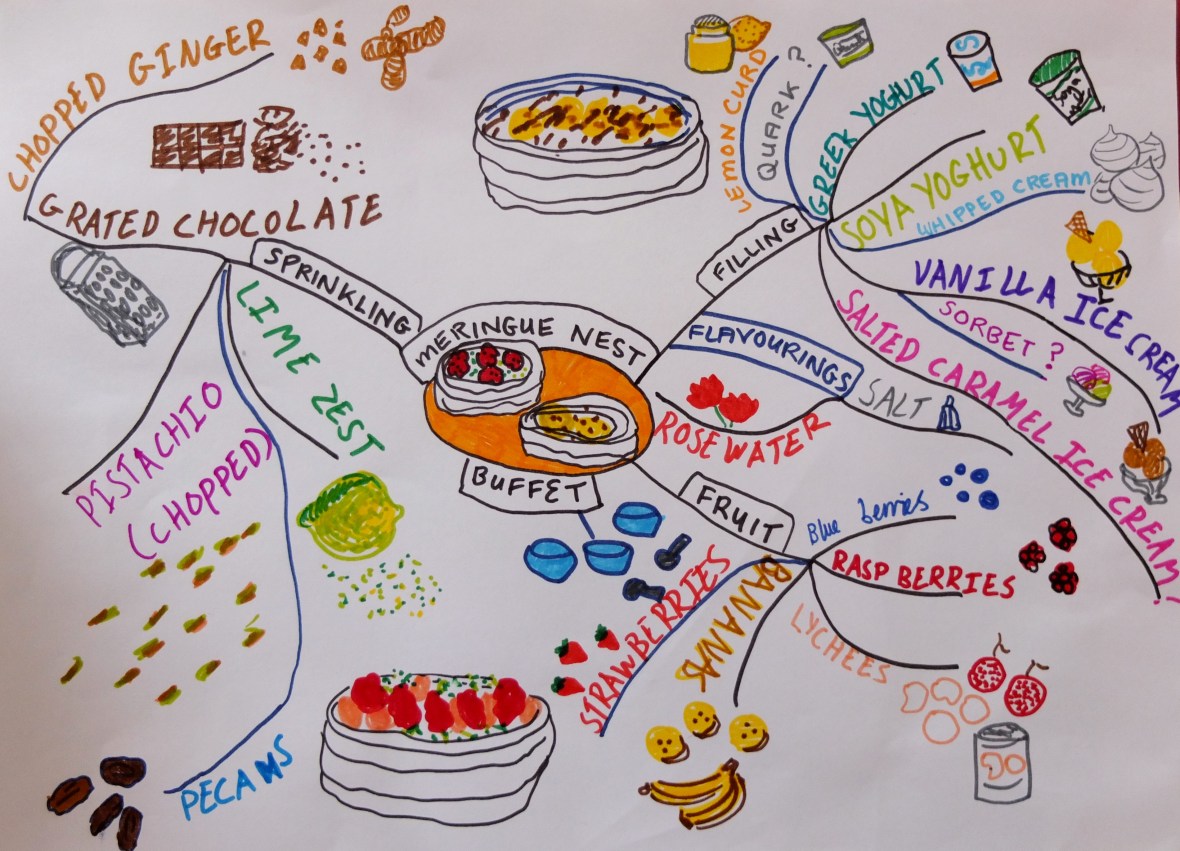 MERINGUE NEST
BUFFET
SPRINKLING
CHOPPED GINGER
GRATED CHOCOLATE
LIME ZEST
PISTACHIO
(CHOPPED)
PECANS
FILLING
LEMON CURD
QUARK ?
GREEK YOGHURT
SOYA YOGHURT
WHIPPED CREAM
VANILLA ICE CREAM
SORBET ?
SALTED CARAMEL ICE CREAM!
FLAVOURINGS
SALT
ROSE WATER
FRUIT
Blue berries
RASPBERRIES
LYCHEES
BANANAS
STRAWBERRIES